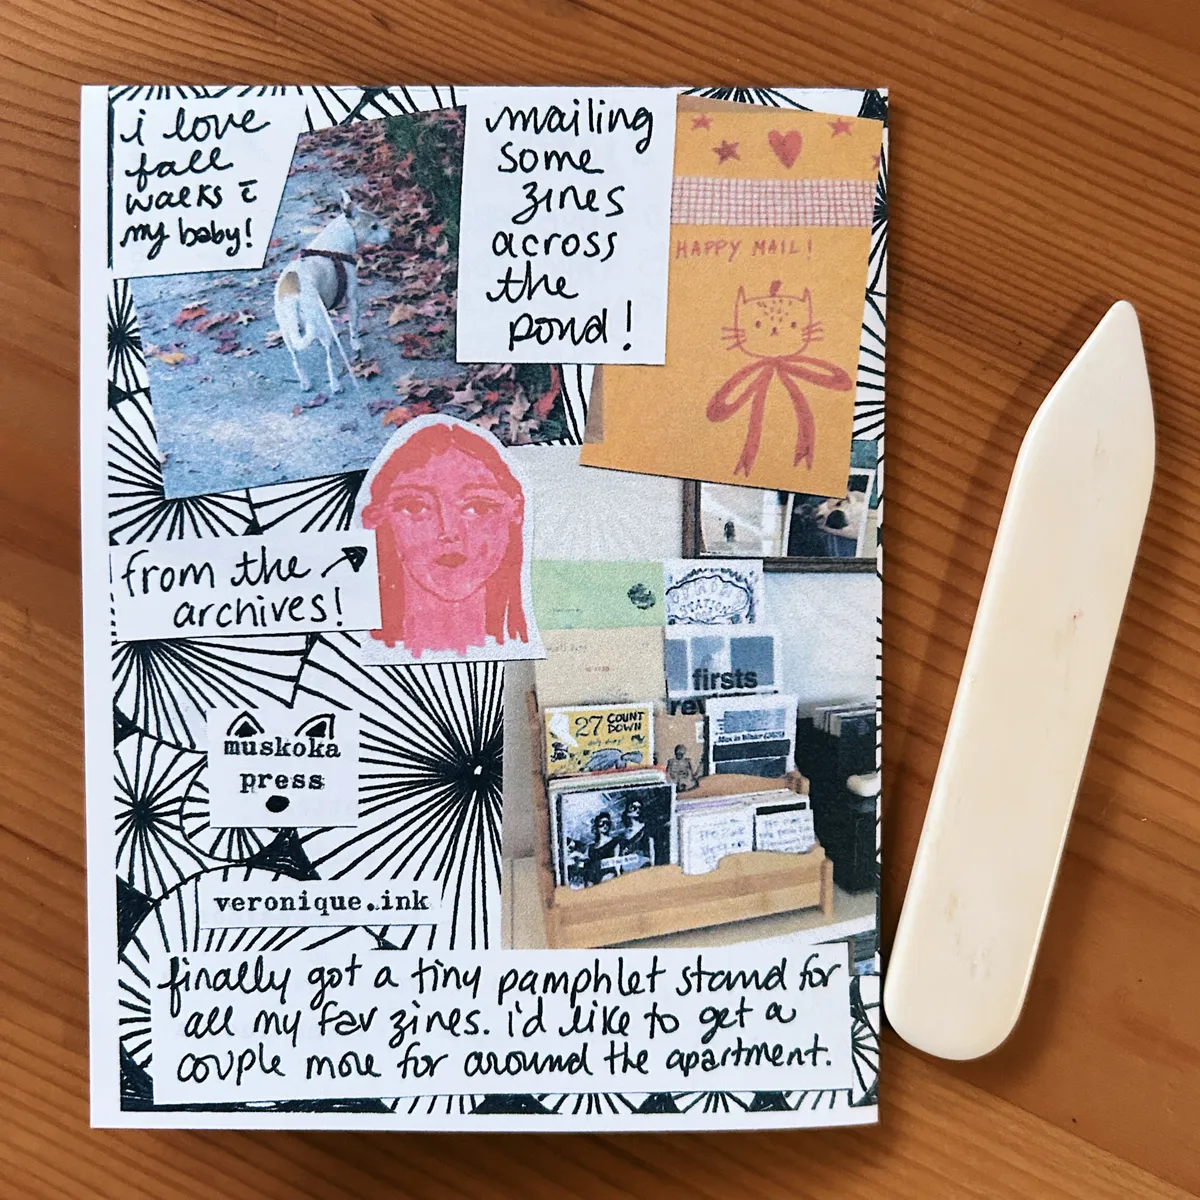 i love
fall
walks c̄
my baby!
mailing
some
zines
across
the
pond!
HAPPY MAIL!
from the
archives!
firsts
27 COUNT
DOWN
muskoka
press
veronique.ink
finally got a tiny pamphlet stand for
all my fav zines. i'd like to get a
couple more for around the apartment.